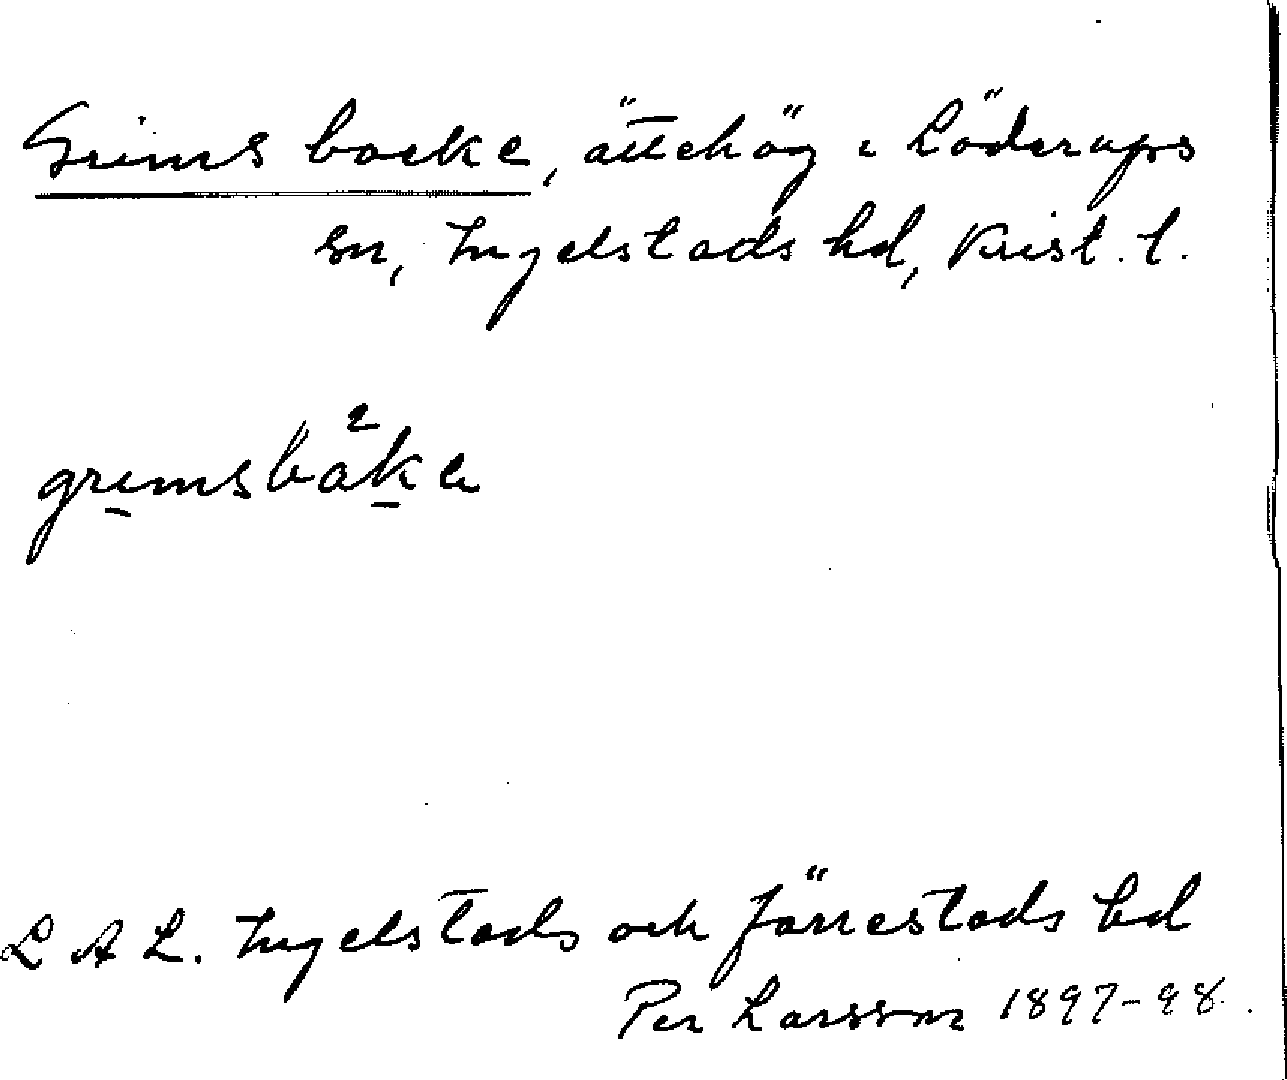 Grims backe, ättehög i Löderups
sn, Ingelstads hd, Krist. l.
grimsbåke
L A L. Ingelstads och Järrestads hd
Per Larsson 1897-98.